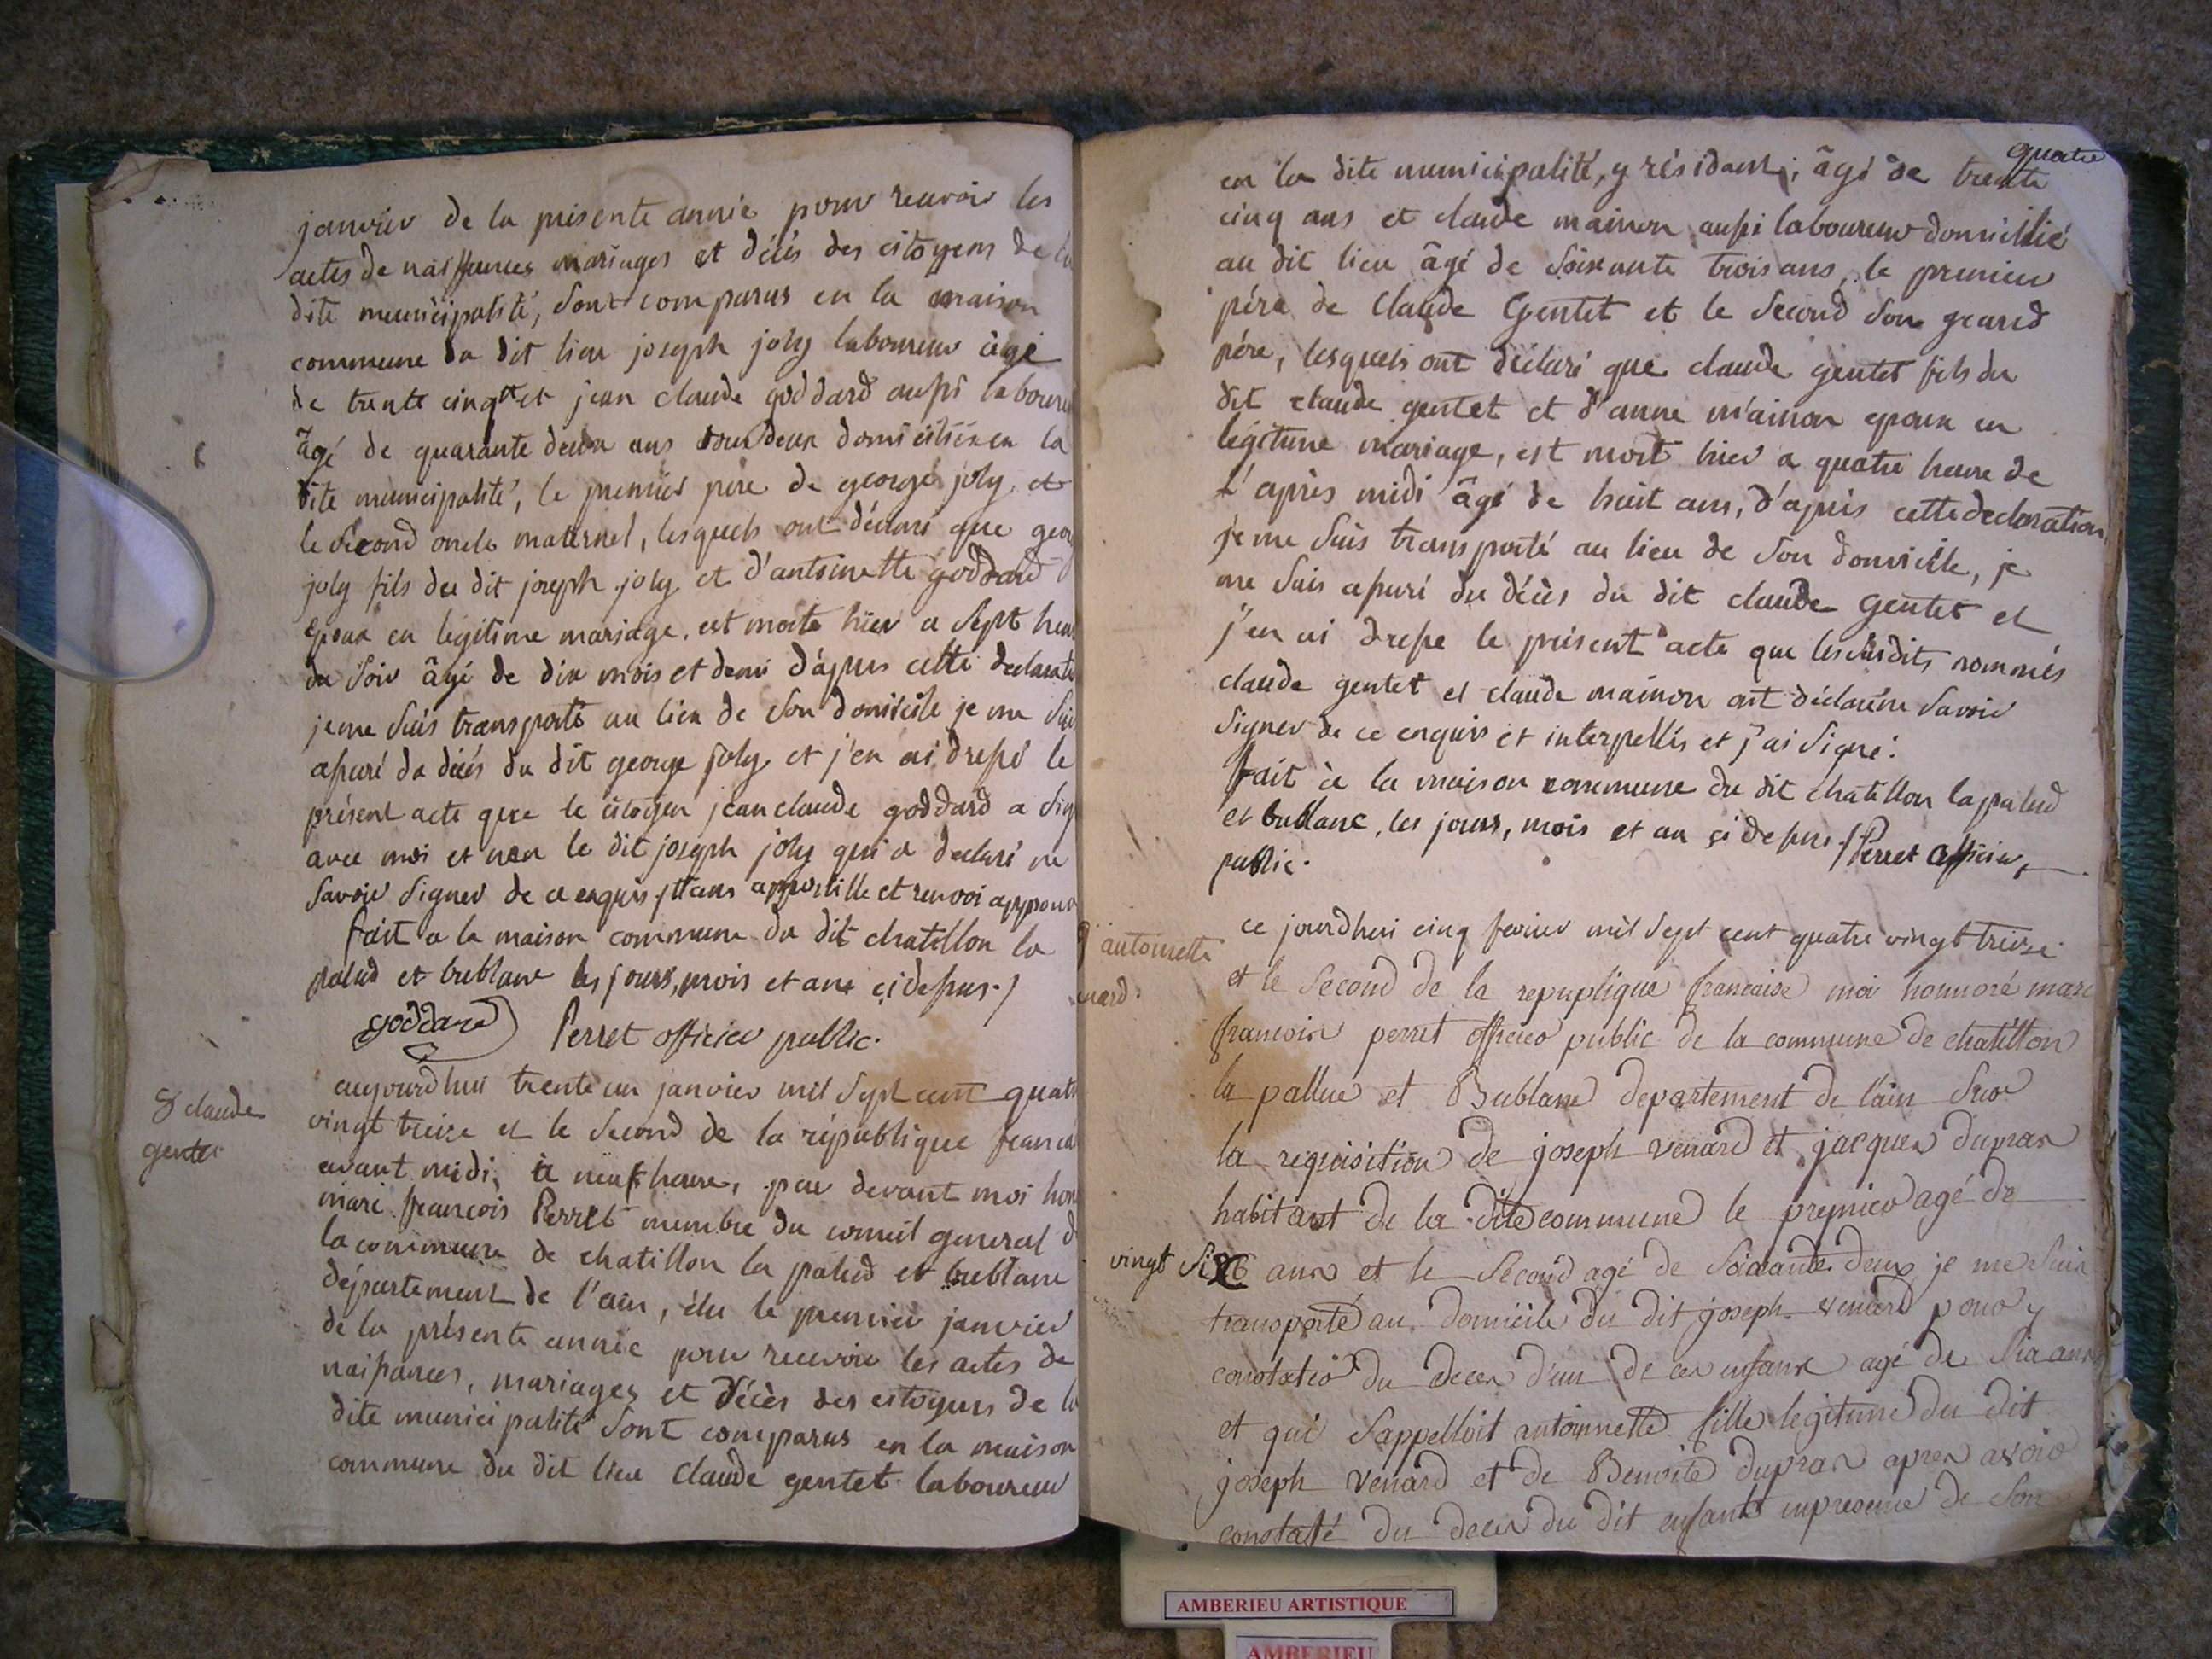 janvier de la présente année pour recevoir les
actes de naissances mariages et décès des citoyens de la
dite municipalité, sont comparus en la maison
commune du dit lieu joseph joly laboureur âgé
de trente cinq et jean claude goddard aussi laboureu
âgé de quarante deux ans tous deux domiciliés en la
dite municipalité, le premier père de george joly et
le second oncle maternel, lesquels ont déclaré que geor
joly fils du dit joseph joly et d'antoinette goddard
epoux en legitime mariage, est morte hier a sept heur
du soir âgé de dix mois et demi d'après cette declarati
je me suis transporté au lieu de son domicile je me suis
assuré du décès du dit george joly et j'en ai dressé le
présent acte que le citoyen jean claude goddard a sig
avec moi et non le dit joseph joly qui a declaré ne
savoir signer de ce enquis /ttans appostille et renvoi approuv
fait a la maison commune du dit chatillon la
palud et bublane les jours, mois et ans ci dessus./
goddard Perret officier public.
8 claude
gentet
aujourdhui trente un janvier mil sept cent quatr
vingt treize et le second de la république francai
avant midi, à neuf heure, par devant moi hon
marc françois Perret membre du conseil general d
la commune de chatillon la palud et bublane
département de l'ain, élu le premier janvier
de la présente année pour recevoir les actes de
naissances, mariages et décès des citoyens de la
dite municipalité sont comparus en la maison
commune du dit lieu claude gentet laboureur
quatre
en la dite municipalité, y résidant, âgé de trente
cinq ans et claude mainon aussi laboureur domicilié
au dit lieu âgé de soixante trois ans, le premier
pére de Claude Gentet et le second son grand
pére, lesquels ont déclaré que claude gentet fils du
dit claude gentet et d'anne mainon epoux en
légitime mariage, est mort hier a quatre heure de
l'après midi âgé de huit ans, d'après cette declaration
je me suis transporté au lieu de son domicile, je
me suis assuré du décès du dit claude Gentet et
j'en ai dressé le présent acte que les susdits nommés
claude gentet et claude mainon ont déclaré ne savoir
signer de ce enquis et interpellés et j'ai signé.
fait à la maison commune du dit chatillon lapalud
et bublane, les jours, mois et an çi dessus./Perret officier
public.
antoinette
enard.
ce jourdhui cinq fevrier mil sept cent quatre vingt treize
et le second de la republique francaise moi honnoré marc
francois perret officier public de la commune de chatillon
la pallue et Bublane departement de l'ain sur
la requisition de joseph venard et jacques dupras
habitant de la dite commune le premier agé de
vingt six ans et le second agé de soixante deux je me suis
transporté au domicile du dit joseph venard pour y
constater du deces d'un de ces enfans agé de six ans
et qui s'appelloit antoinnette fille legitime du dit
joseph venard et de Benoite dupras apres avoir
constaté du deces du dit enfant en presence de son
AMBERIEU ARTISTIQUE
AMBERIEU